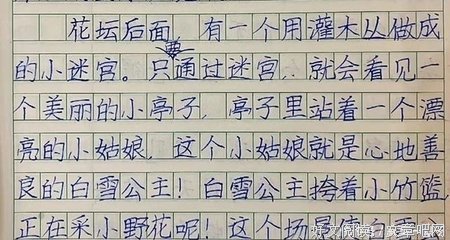 花坛后面，有一个用灌木丛做成
的小迷宫。只要通过迷宫，就会看见一
个美丽的小亭子，亭子里站着一个漂
亮的小姑娘，这个小姑娘就是心地善
良的白雪公主！白雪公主挎着小竹篮，
正在采小野花呢！这个场景使白雪公